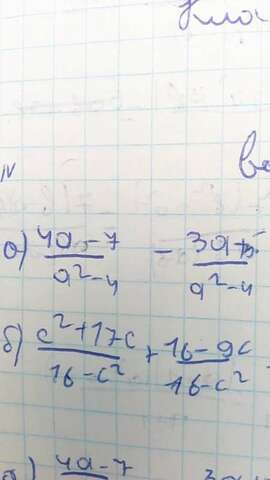 Кла
IV
а) 4a-7 / a²-4 - 3a+5 / a²-4
б) c²+17c / 16-c² + 16-9c / 16-c²
4a-7